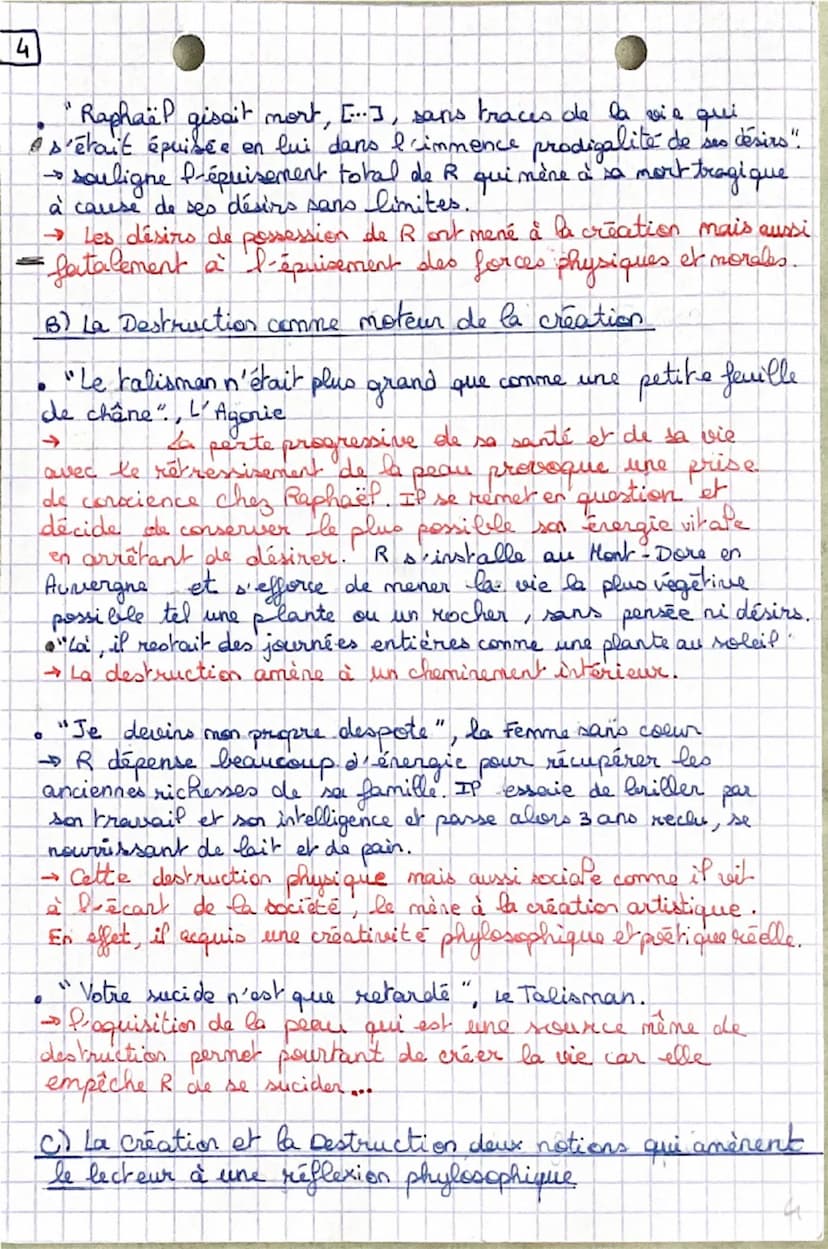 4
• "Raphaël gisait mort, [...], sans traces de la vie qui
s'était épuisée en lui dans l'immence prodigalité de ses désirs".
→ souligne l'épuisement total de R qui mène à sa mort tragique
à cause de ses désirs sans limites.
→ Les désirs de possession de R ont mené à la création mais aussi
fatalement à l'épuisement des forces physiques et morales.
B) La Destruction comme moteur de la création
• "Le talisman n'était plus grand que comme une petite feuille
de chêne", L'Agonie
→ La perte progressive de sa santé et de sa vie
avec le rétressissement de la peau provoque une prise
de conscience chez Raphaël. Il se remet en question et
décide de conserver le plus possible son énergie vitale
en arrêtant de désirer. R s'installe au Mont-Dore en
Auvergne et s'efforce de mener la vie la plus végétive
possible tel une plante ou un rocher, sans pensée ni désirs.
• "Là, il restait des journées entières comme une plante au soleil"
→ La destruction amène à un cheminement intérieur.
• "Je devins mon propre despote", la Femme sans coeur
→ R dépense beaucoup d'énergie pour récupérer les
anciennes richesses de sa famille. Il essaie de briller par
son travail et son intelligence et passe alors 3 ans reclu, se
nourrissant de lait et de pain.
→ Cette destruction physique mais aussi sociale comme il vit
à l'écart de la société, le mène à la création artistique.
En effet, il acquis une créativité phylosophique et poétique réelle.
• "Votre sucide n'est que retardé", Le Talisman.
→ l'aquisition de la peau qui est une source même de
destruction permet pourtant de créer la vie car elle
empêche R de se sucider...
C) La Création et la Destruction deux notions qui amènent
le lecteur à une réflexion phylosophique
4